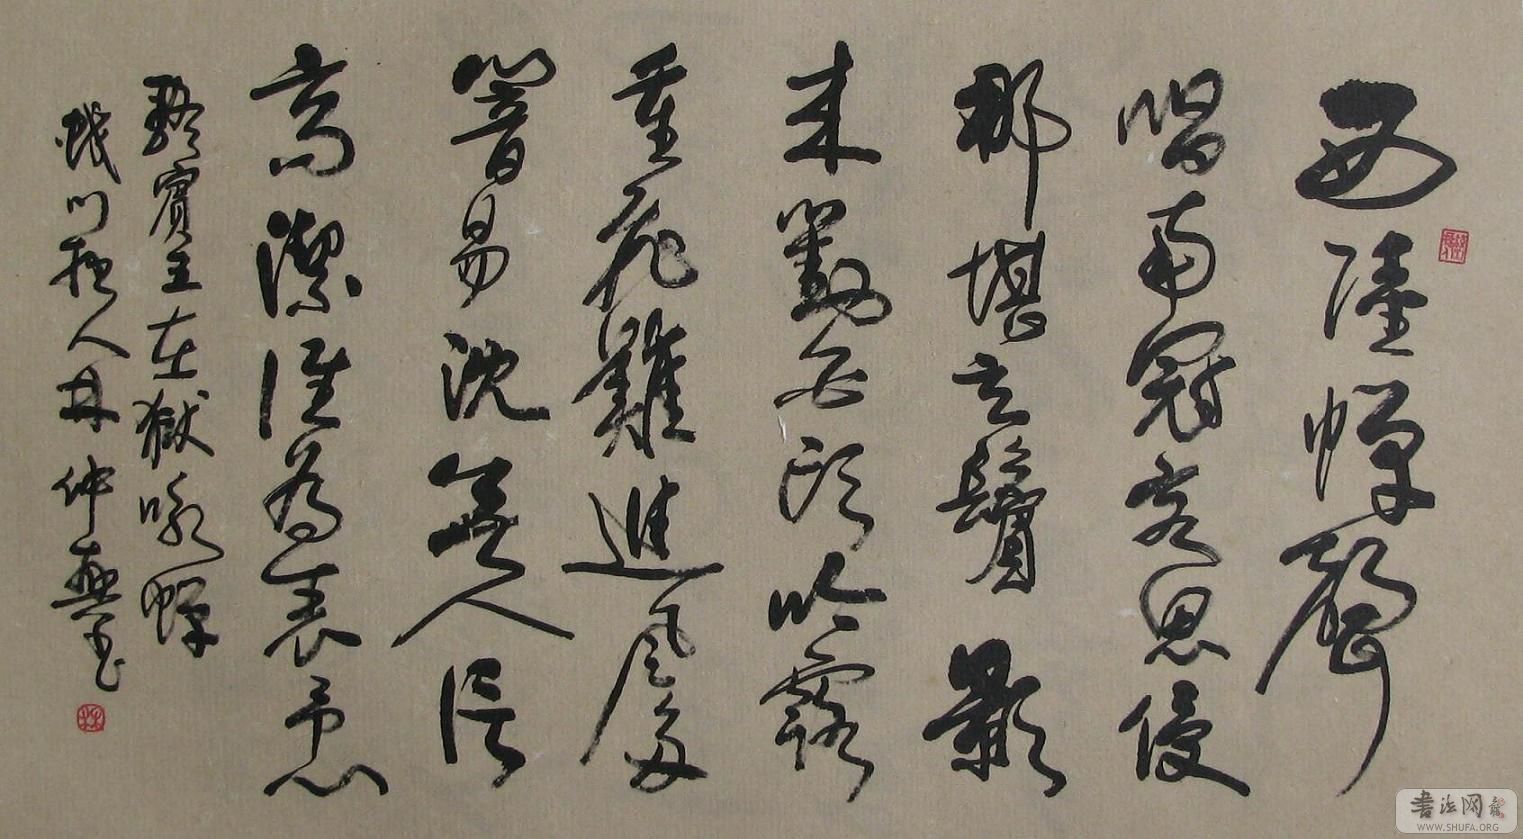 西陸蟬聲
唱南冠客思侵
那堪玄鬢影
来對白頭吟露
重飛難進風多
響易沈無人信
高潔誰為表予心
駱賓王在獄詠蟬
川人林仲興书
林
書法网
WWW.SHUFA.ORG